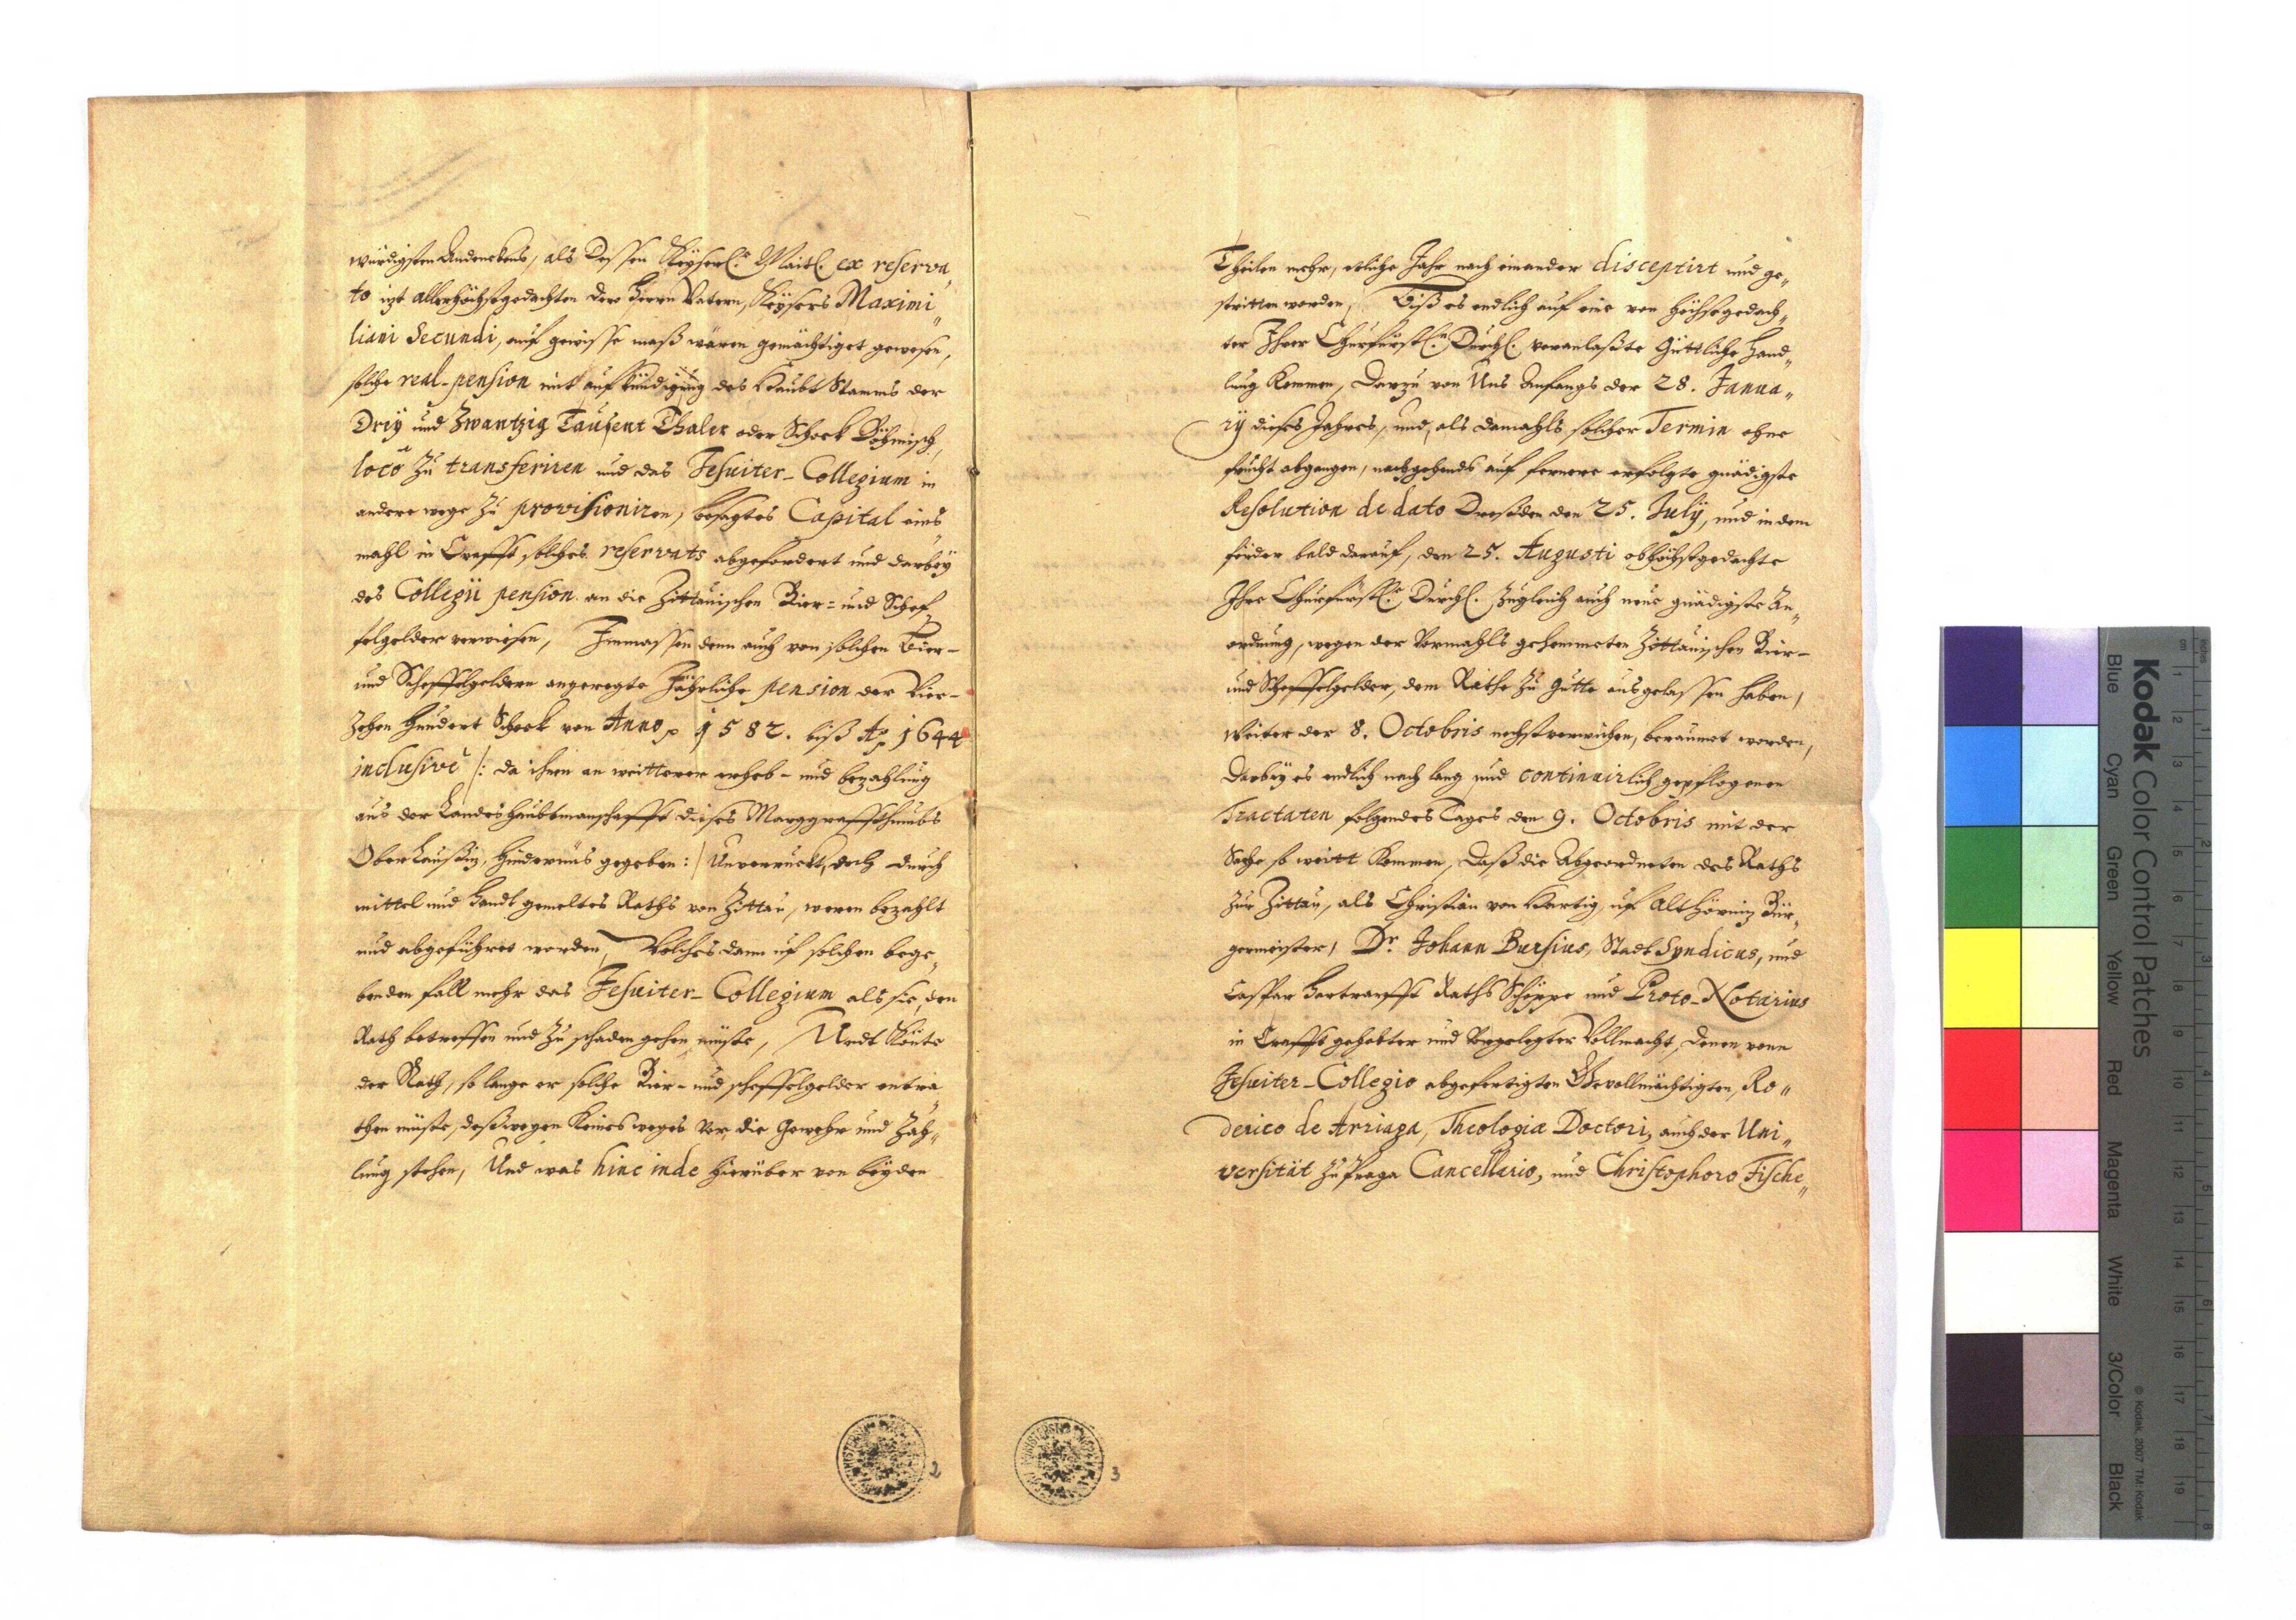 würdigsten Andenckens, als dessen Keyserl.r Mait. ex reserva„
to izt allerhöchstgedachten dero Herrn Vatern, Keysers Maximi„
liani Secundi, auf gewisse maß wären gemächtiget gewesen,
solche real-pension mit aufkündigung des Haubt Stamms der
Drey und Zwantzig Tausent Thaler oder Schock Böhmisch,
loco zu transferiren und das Jesuiter-Collegium in
andere wege zu provisioniren, besagtes Capital eins„
mahl in Crafft solches reservats abgefordert und darbey
des Collegii pension an die Zittauischen Bier- und Schef„
felgelder verwiesen, Immassen denn auch von solchen Bier-
und Scheffelgeldern angeregte Jährliche pension der Vier-
zehen Hundert Schock von Anno p 1582. biß Ao p 1644
inclusivè /: da ihnen an weitterer erheb- und bezahlung
aus der Landeshaubtmanschafft dieses Marggraffthumbs
Ober Laußitz, hindernüs gegeben :/ Unverruckt, doch durch
mittel und Handt gemeltes Raths von Zittau, weren bezahlt
und abgeführet worden, Welches dann uf solchen bege„
benden fall mehr das Jesuiter-Collegium als sie, den
Rath betreffen und zu schaden gehen müste, Undt Könte
der Rath, so lange er solche Bier- und scheffelgelder entra„
then müste, deßwegen keines weges vor die Gewehr und Zah„
lung stehen, Und was hinc inde hierüber von beyden
2
Theilen mehr, etliche Jahr nach einander disceptirt und ge„
stritten worden, Biß es endlich auf eine von höchstgedach„
ter Ihrer Churfürstl.n Durchl. veranlaßte Güttliche Hand„
lung kommen, Darzu von Uns Anfangs der 28. Janua„
rij dieses Jahres, und, als damahls solcher Termin ohne
frucht abgangen, nachgehends auf fernere erfolgte gnädigste
Resolution de dato Dreßden den 25. July, und indem
förder bald darauf, den 25. Augusti obhöchstgedachte
Ihre Churfürstl.e Durchl. zugleich auch neue gnädigste An„
ordnung, wegen der Vormahls gehemmeten Zittauischen Bier-
und Scheffelgelder, dem Rathe zu Gutte ausgelassen haben,
weiter der 8. Octobris nechstverwichen, beraumet worden,
Darbey es endlich nach lang und continuirlich gepflogenen
Tractaten folgendes Tages den 9. Octobris mit der
Sache so weitt kommen, daß die Abgeordneten des Raths
zur Zittau, als Christian von Hartig, uf Althörnitz Bür„
germeister, Dr. Johann Bursius, Stadt Syndicus, und
Caspar Hartranfft Raths Schöppe und Proto-Notarius
in Crafft gehabter und Vorgelegter Vollmacht, denen vom
Jesuiter-Collegio abgefertigten Bevollmächtigten, Ro„
derico de Arriaga, Theologiæ Doctori, auch der Uni„
versität zu Praga Cancellario, und Christophoro Fische„
3
Kodak Color Control Patches
Blue Cyan Green Yellow Red Magenta White 3/Color Black
© Kodak, 2007 TM: Kodak